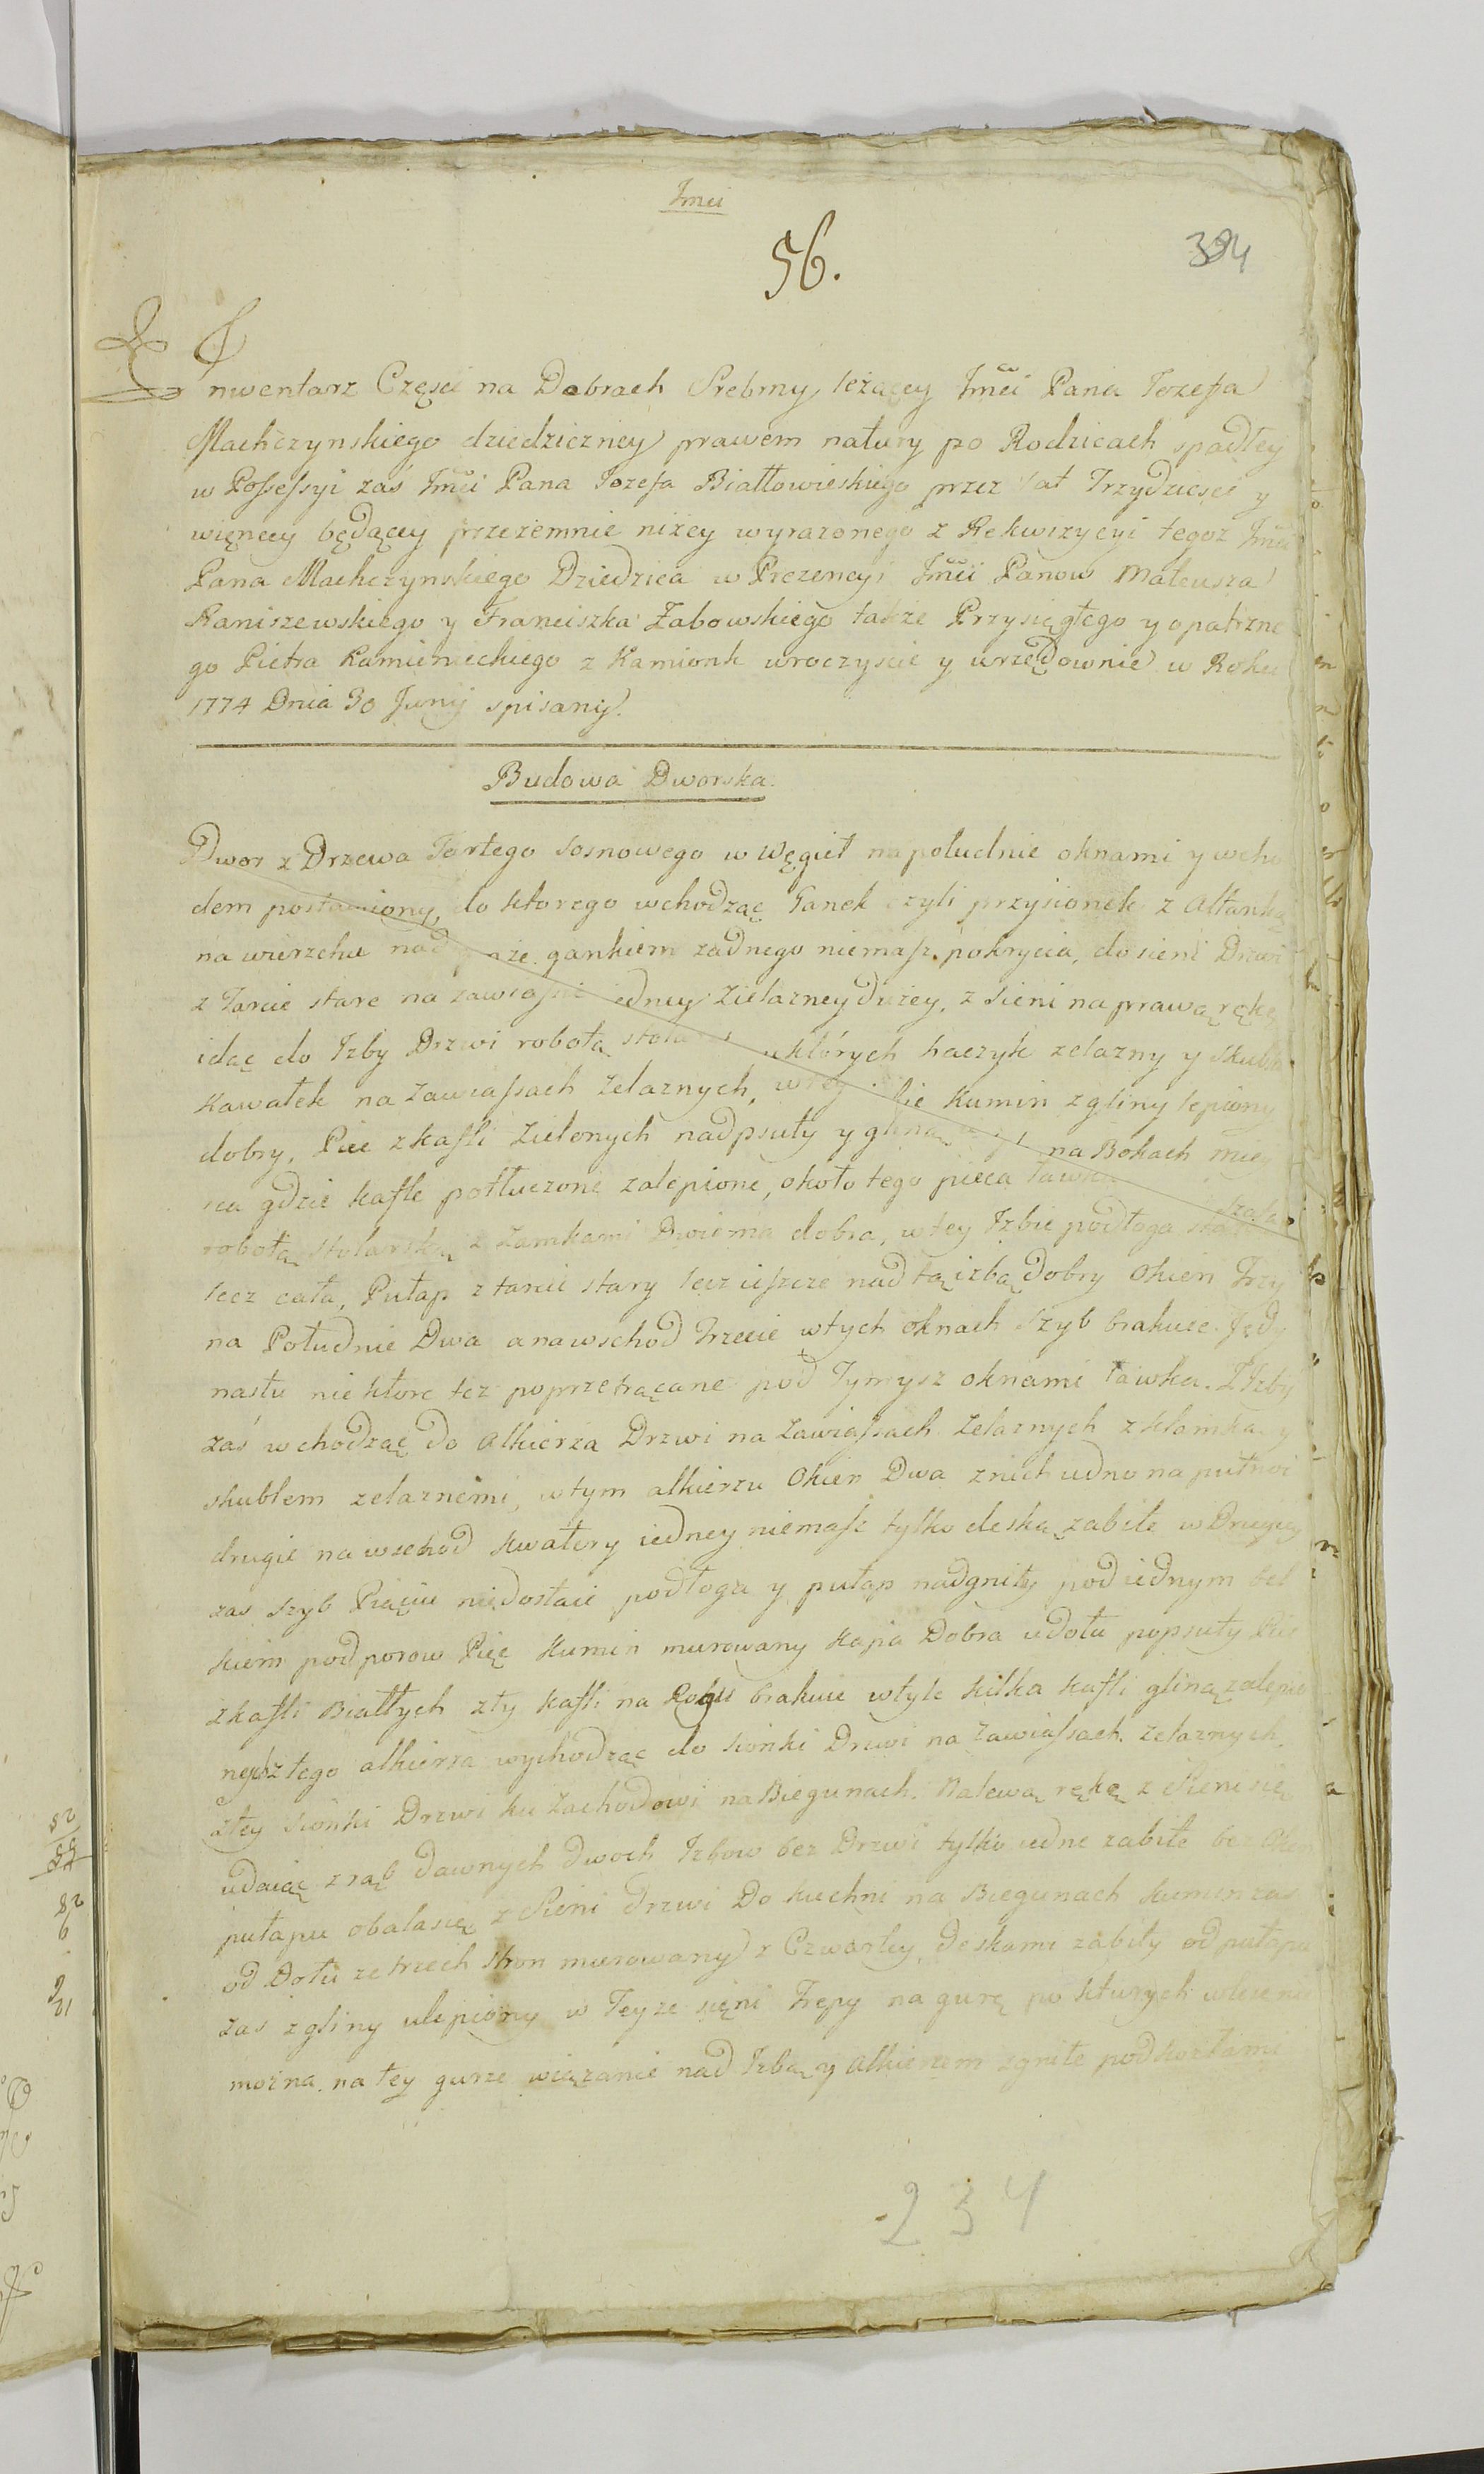 Jmci
56.
394
Inwentarz Części na Dobrach Srebrny leżącey Jmći Pana Iozefa
Machczynskiego dziedziczney prawem natury po Rodzicach spadłey
w Possessyi zaś Jmći Pana Iozefa Białłowieskiego przez lat Trzydzieści y
więncey będącey przezemnie niżey wyrazonego z Rekwizycyi tegoz Jmći
Pana Machczynskiego Dziedzica w Prezencyi Jmći Panow Mateusza
Raniszewskiego y Franciszka Zabowskiego także Przysięgłego y opatrzne
go Pietra Kamienieckiego z Kamionk wroczyscie y urzędownie w Roku
1774 Dnia 30 Junij spisany.
Budowa Dworska.
Dwor z Drzewa Tartego sosnowego w węgieł na południe oknami y wcho
dem postawiony, do ktorego wchodząc Ganek czyli przysionek z Altanką
na wierzchu nad gankiem żadnego niemasz pokrycia, do sieni Drzwi
z Tarcic stare na zawiasie iedney Zielazney dużey, z sieni na prawą rękę
idąc do Izby Drzwi robotą u których haczyk zelazny y skubla
kawałek na Zawiassach Zelaznych, kumin z gliny lepiony
dobry, Piec z kafli Zielonych nadpsuty y gliną na Bokach miey
sca gdzie kafle potłuczone zalepione, około tego pieca ławka szafa
robotą stolarską z Zamkami Dwiema dobra, w tey Izbie podłoga stara
lecz cała, Pułap z tarcic stary lecz ieszcze nad tą izbą dobry Okien Trzy
na Południe Dwa a na wschod Trzecie w tych oknach szyb brakuie Jedy
nastu niektore tez poprzetrącane pod Tymysz oknami ławka. Z Izby
zaś wchodząc do Alkierza Drzwi na Zawiassach Zelaznych z klamką y
skublem zelaznemi, w tym alkierzu Okien Dwa z nich iedno na
drugie na wschod kwatery iedney niemasz tylko deską zabite w Drugiey
zas szyb Piąciu niedostaie podłoga y pułap nadgniły pod iednym bel
kiem podporow Pięć Kumin murowany kapa Dobra u dołu popsuty Piec
z kafli Białłych zły kafli na Rogu brakuie w tyle kilka kafli gliną zalepio
nych z tego alkierza wychodząc do sionki Drzwi na Zawiassach zelaznych.
z tey sionki Drzwi ku Zachodowi na Biegunach. Na lewą rękę z Sieni się
udaiąc zrąb dawnych dwoch Izbow bez Drzwi tylko iedne zabite bez Okien
pułapu obala się z Sieni drzwi Do kuchni na Biegunach kumin zas
od Dołu ze trzech stron murowany z Czwartey deskami zabity od pułapu
zas z gliny ulepiony w Teyze sieni Trepy na gurę po których
można. na tey gurze wiązanie nad Izbą y Alkierzem zgniłe pod kozłami
234